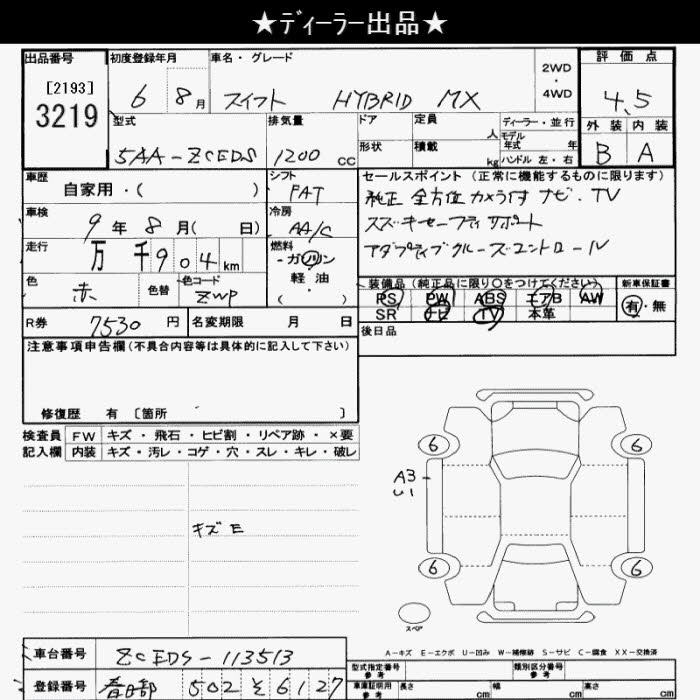 ★ディーラー出品★
出品番号
[2193]
3219
初度登録年月
6 8月
車名・グレード
スイフト HYBRID MX
2WD
・
4WD
評価点
4.5
外装 内装
B A
型式
5AA-ZCEDS
排気量
1200 cc
ドア
形状
定員
人
積載
kg
ディーラー・並行
モデル
年式 年
ハンドル 左・右
車歴
自家用・( )
シフト
FAT
セールスポイント (正常に機能するものに限ります)
純正 全方位カメラ付ナビ.TV
スズキセーフティサポート
アダプティブクルーズコントロール
車検
9年 8月( 日)
冷房
AA/C
走行
万 千 9 0 4 km
燃料
ガソリン
・
軽油
( )
色
赤
色替
色コード
ZWP
装備品 (純正品に限り○をつけてください)
PS PW ABS エアB AW
SR ナビ TV 本革
新車保証書
有・無
R券 7530 円
名変期限 月 日
後日品
注意事項申告欄(不具合内容等は具体的に記入して下さい)
修復歴 有 〔箇所 〕
検査員
記入欄
FW キズ・飛石・ヒビ割・リペア跡・×要
内装 キズ・汚レ・コゲ・穴・スレ・キレ・破レ
キズE
6 6
A3
U1
6 6
スペア
A-キズ E-エクボ U-凹み W-補修跡 S-サビ C-腐食 XX-交換済
車台番号 ZCEDS-113513
登録番号 春日部 502 そ 6127
型式指定番号
参考
類別区分番号
参考
車庫証明用
参考
長さ cm
幅 cm
高さ cm